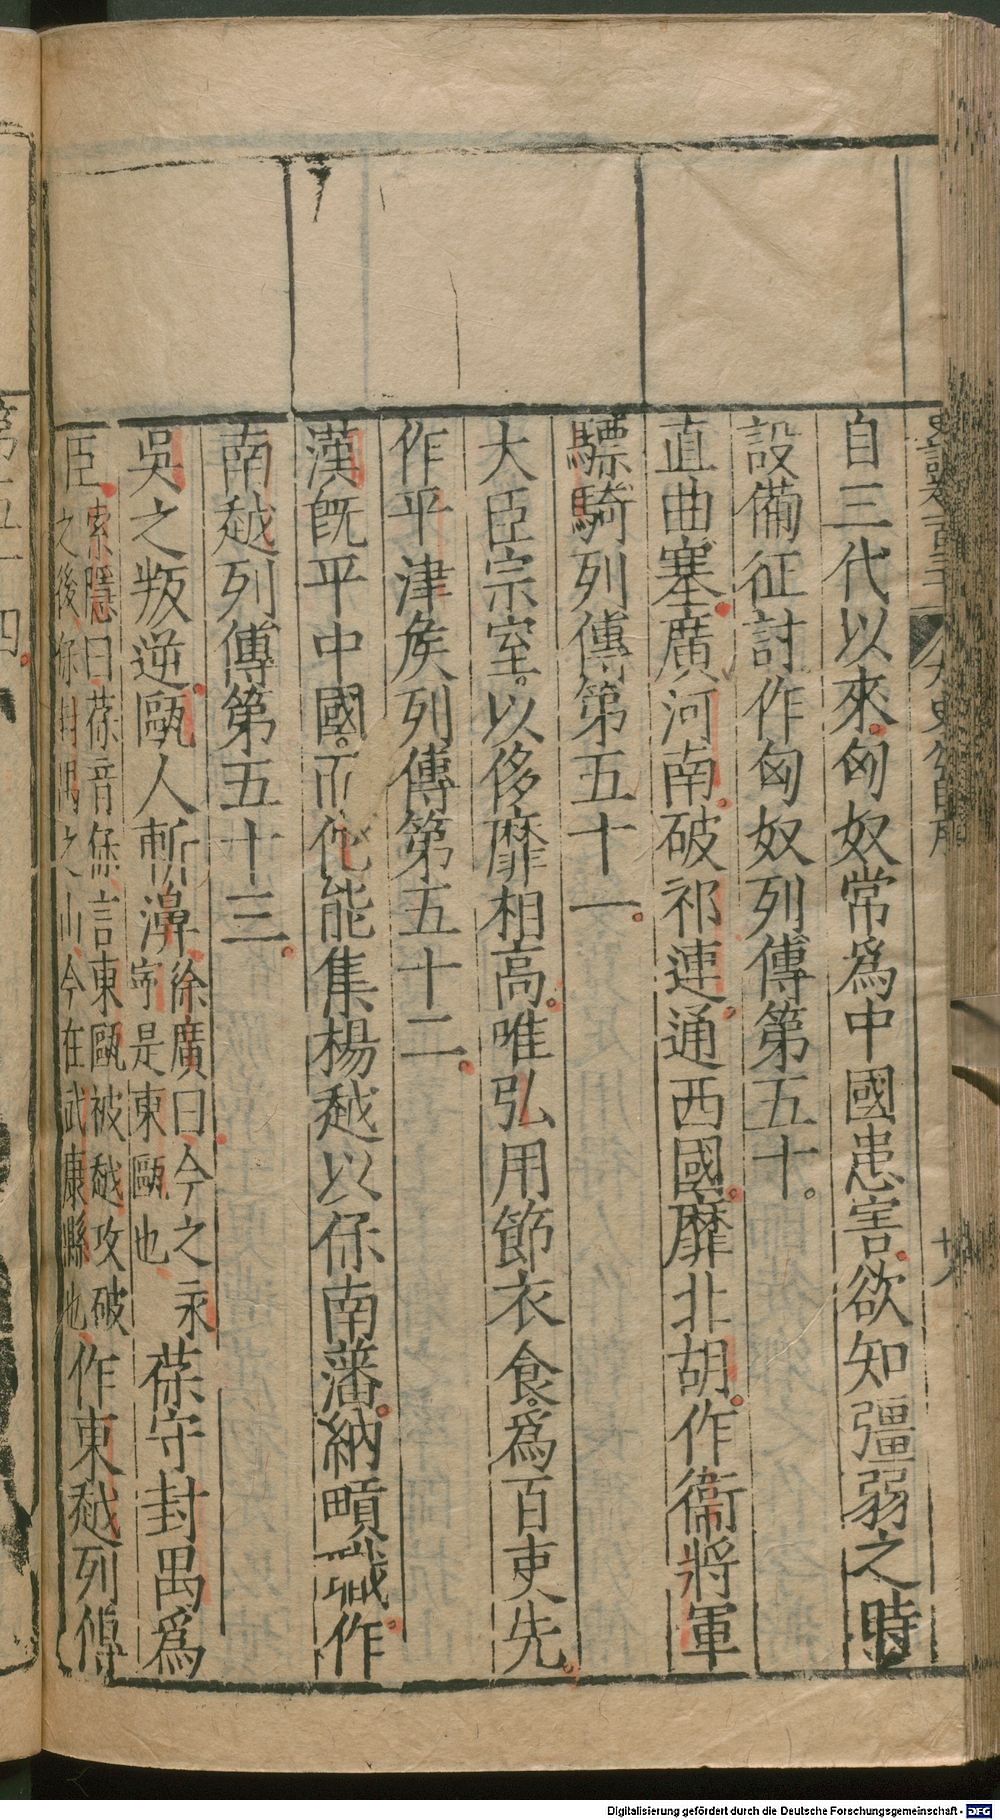 自三代以來匈奴常爲中國患害欲知彊弱之時
設備征討作匈奴列傳第五十
直曲塞廣河南破祁連通西國靡北胡作衞將軍
驃騎列傳第五十一
大臣宗室以侈靡相高唯弘用節衣食爲百吏先
作平津矦列傳第五十二
漢旣平中國而佗能集楊越以保南藩納貢職作
南越列傳第五十三
吳之叛逆甌人斬濞徐廣曰今之永寧是東甌也葆守封禺爲
臣索隱曰葆音保言東甌被越攻破之後保封禺之山今在武康縣也作東越列傳
第五十四
Digitalisierung gefördert durch die Deutsche Forschungsgemeinschaft - DFG